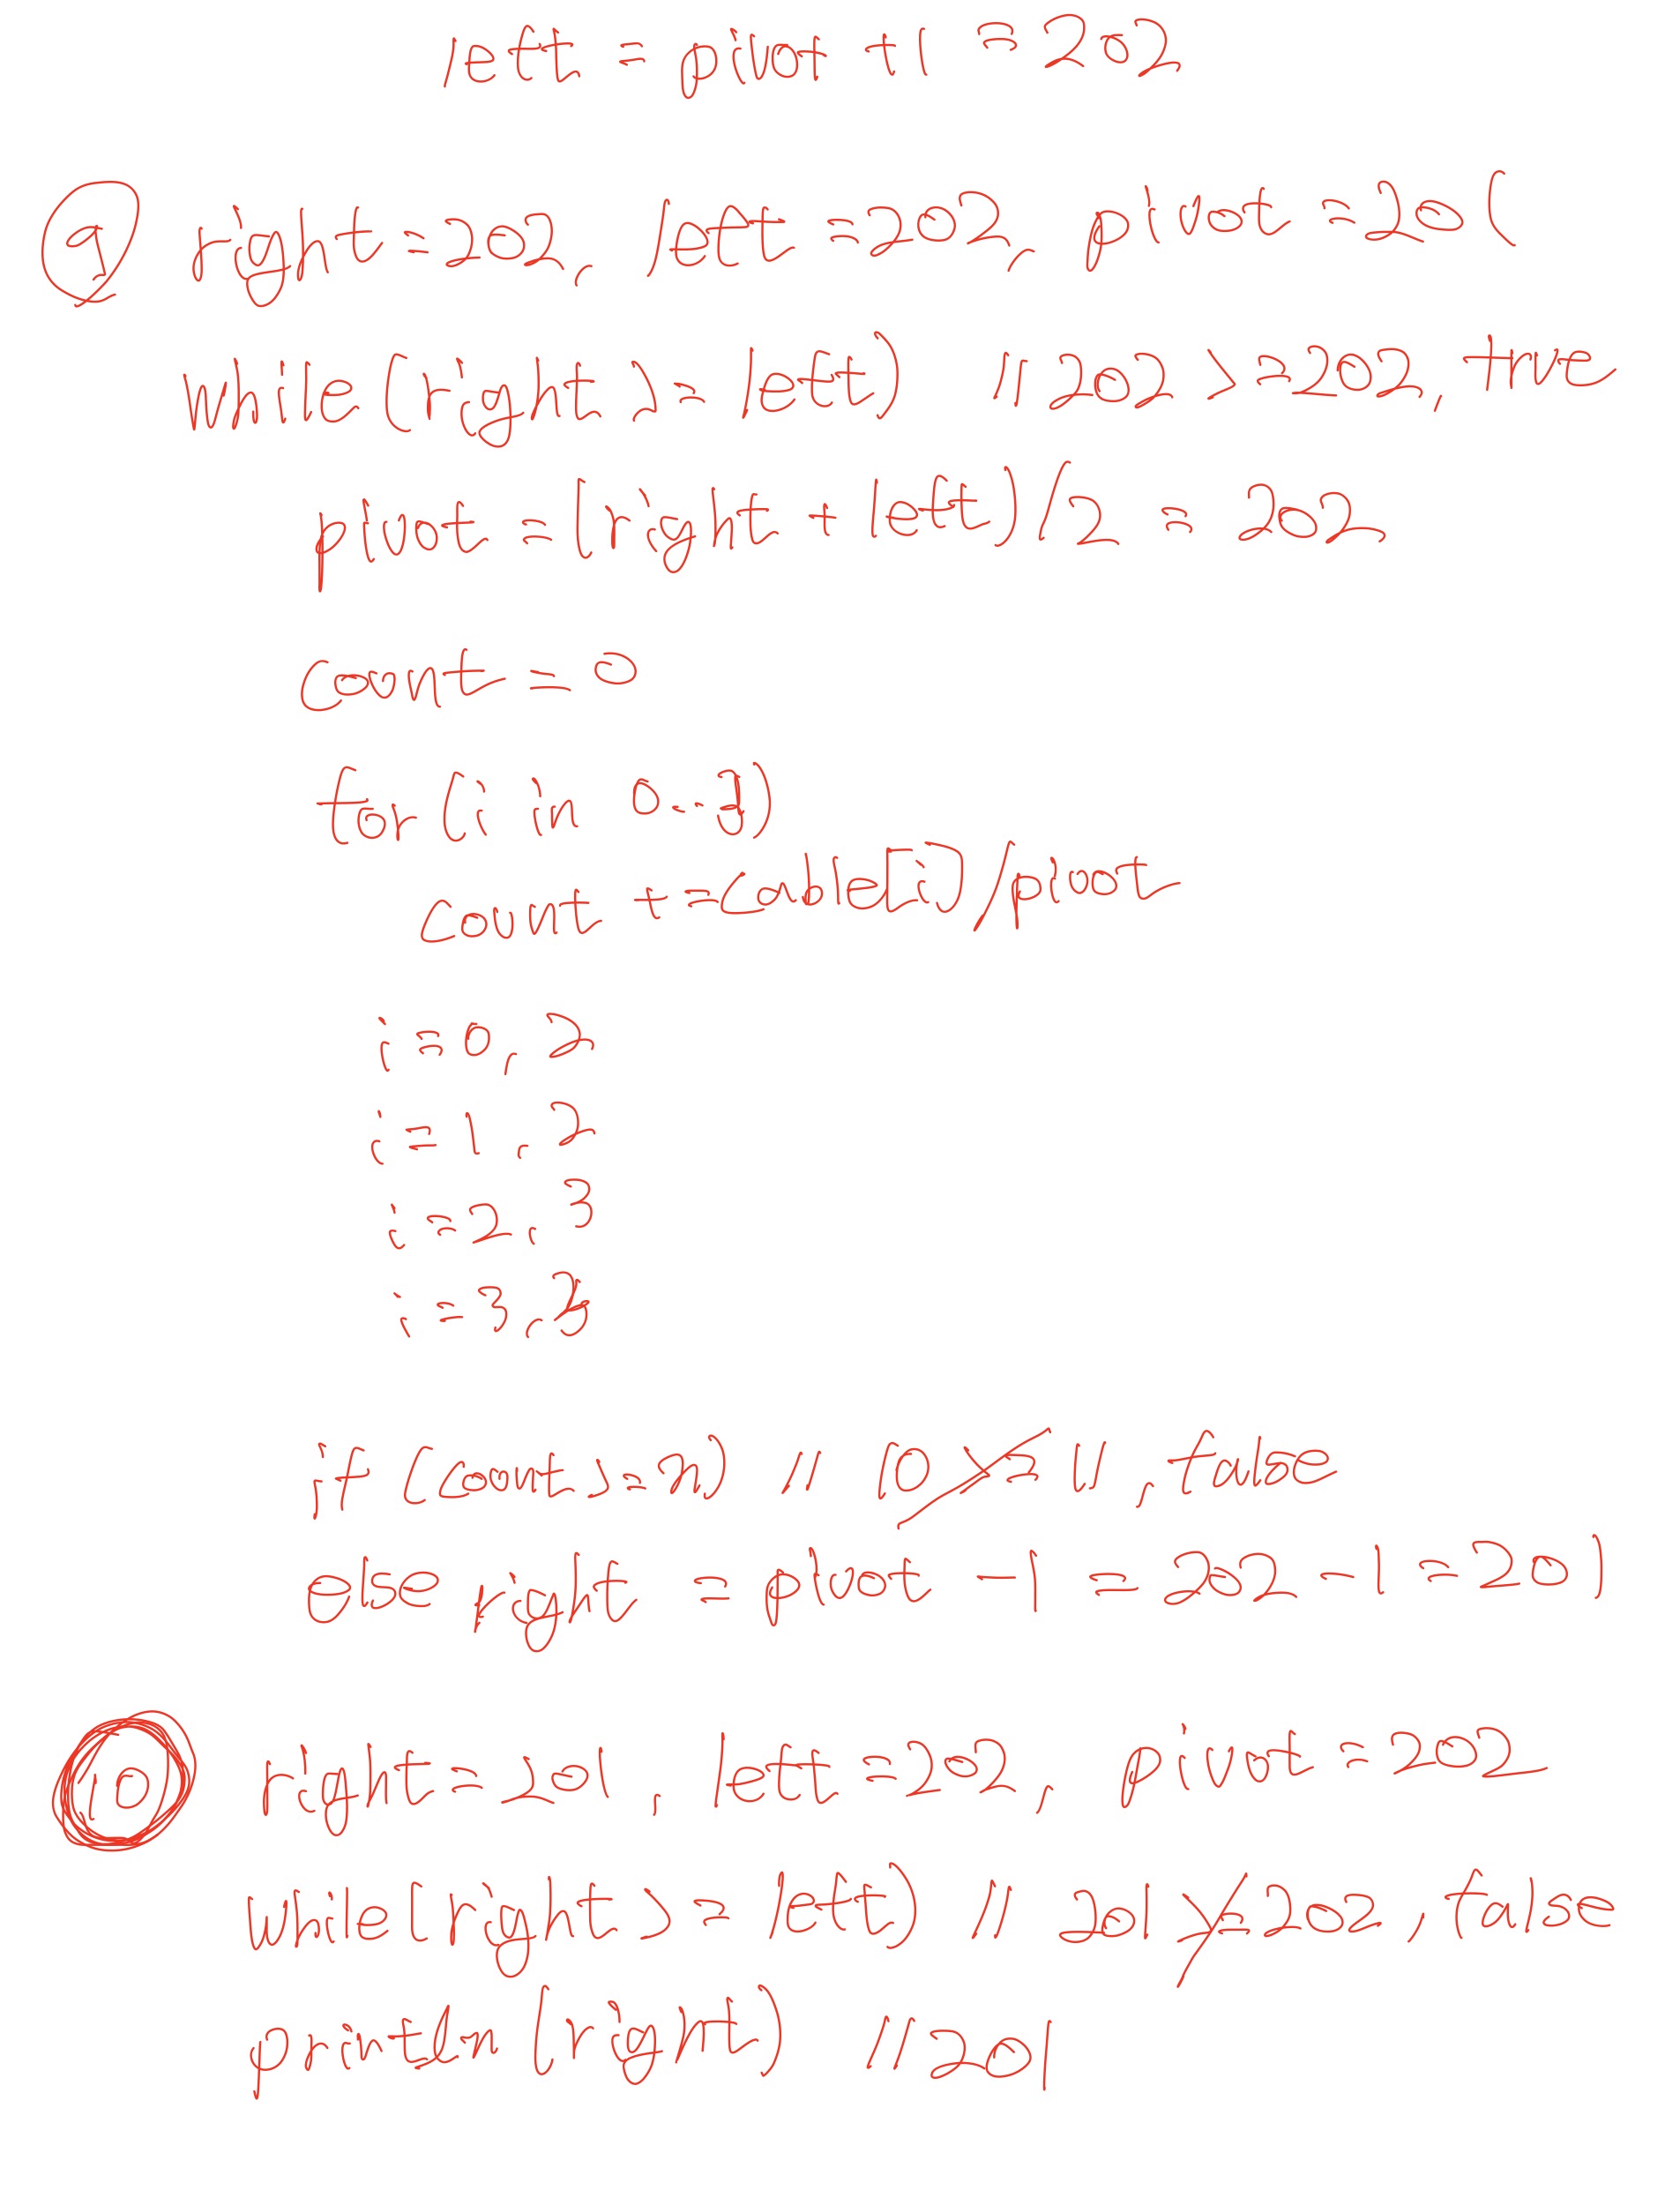 left = pivot +1 = 202
9 right=202, left =202, pivot =201
while(right >= left) // 202 >=202, true
pivot =(right + left)/2 = 202
count = 0
for (i in 0..3)
count +=cable[i]/pivot
i=0, 2
i=1, 2
i=2, 3
i=3, 3
if (count>=n) // 10>=11, false
else right =pivot -1 = 202 -1 =201
10 right=201, left=202, pivot=202
while(right >= left) // 201>=202, false
println(right) //201